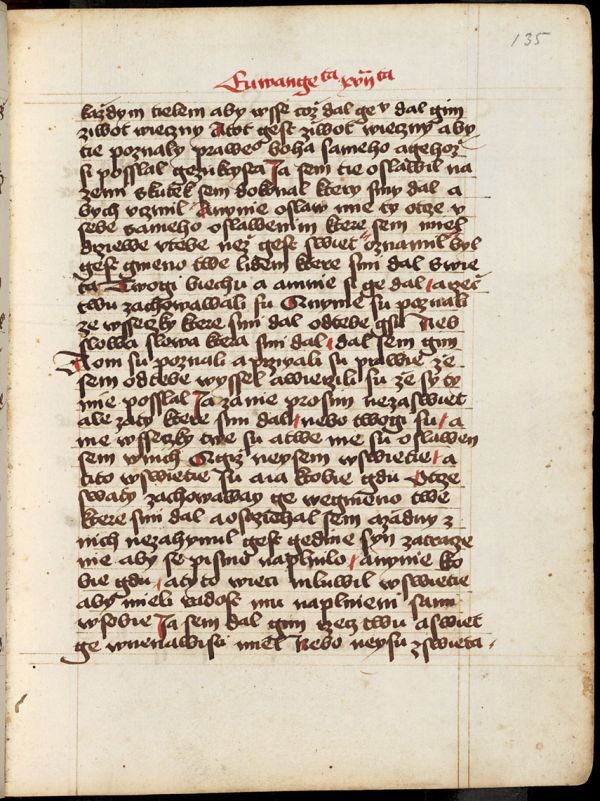 135
Euwangeta xvijta
každym tielem aby wsse což dal ge y dal gim
ziwot wieczny Atot gest ziwot wieczny aby
tie poznaly praweº boha sameho agehož
si posslal gezukrysta Ja sem tie oslawil na
zemi skutek sem dokonal ktery smy dal a
bych vczinil Anynie oslaw mie ty otcze v
sebe sameho oslawenim ktere sem miel
dziewe vtebe než gest swiet oznamil byl
gest gmeno twe lidem ktere smi dal swie
ta Twogi biechu a amnie si ge dal a rzecz
twu zachowawali su Anynie su poznali
ze wsseczky ktere smi dal odtebe gsu Neb
slowa slowa ktera smi dal dal sem gim
A oni su poznali aprzyali su prawie ze
sem odtebe wyssel awierzili su ze sy ty
mie posslal Ja zanie prosim nezaswiet
ale zaty ktere smi dal nebo twogi su a
me wsseczky twe su atwe me su oslawen
sem wnich Agiz neysem wswietie a
tito wswietie su aia ktobie gdu Otcze
swaty zachowaway ge wegmeno twe
ktere smi dal aostrziehal sem azadny z
nich nezahynul gest gedine syn zatracze
nie aby se pismo naplnilo anynie kto
bie gdu atyto wieci mluwil wswietie
aby mieli radost mu naplniem sami
wsobie Ja sem dal gim rzecz twu aswiet
ge wnenawisti miel Nebo neysu zswieta